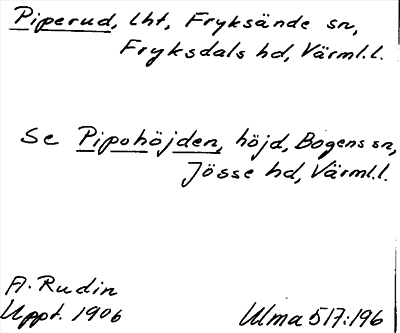 Piperud, lht, Fryksände sn,
Fryksdals hd, Värml.l.
Se Pipohöjden, höjd, Bogens sn,
Jösse hd, Värml.l.
A. Rudin
Uppt. 1906
Ulma 517:196